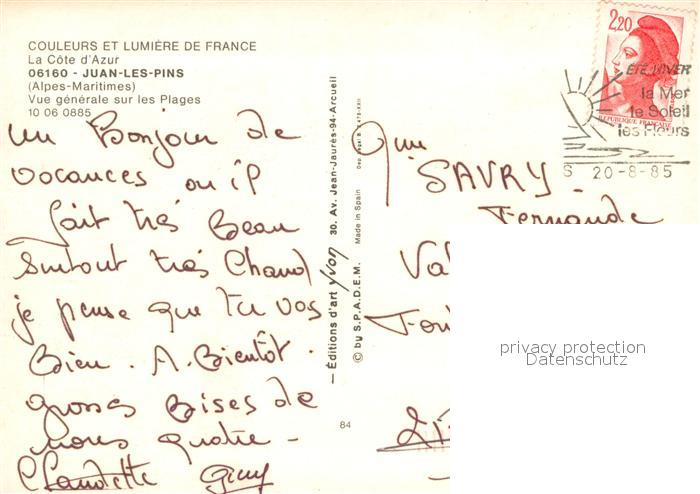 COULEURS ET LUMIÈRE DE FRANCE
La Côte d'Azur
06160 - JUAN-LES-PINS
(Alpes-Maritimes)
Vue générale sur les Plages
10 06 0885
un Bonjour de
vacances ou il
fait très Beau
surtout très Chaud
je pense que tu vas
Bien. A. Bientôt.
grosses Bises de
nous quatre -
Claudette
— Éditions d'art yvon 30. Av. Jean-Jaurès-94-Arcueil
© by S.P.A.D.E.M. Made in Spain
84
2,20
REPUBLIQUE FRANÇAISE
ÉTÉ HIVER
la Mer
le Soleil
les Fleurs
S 20-8-85
SAVRY
Fernande
privacy protection
Datenschutz